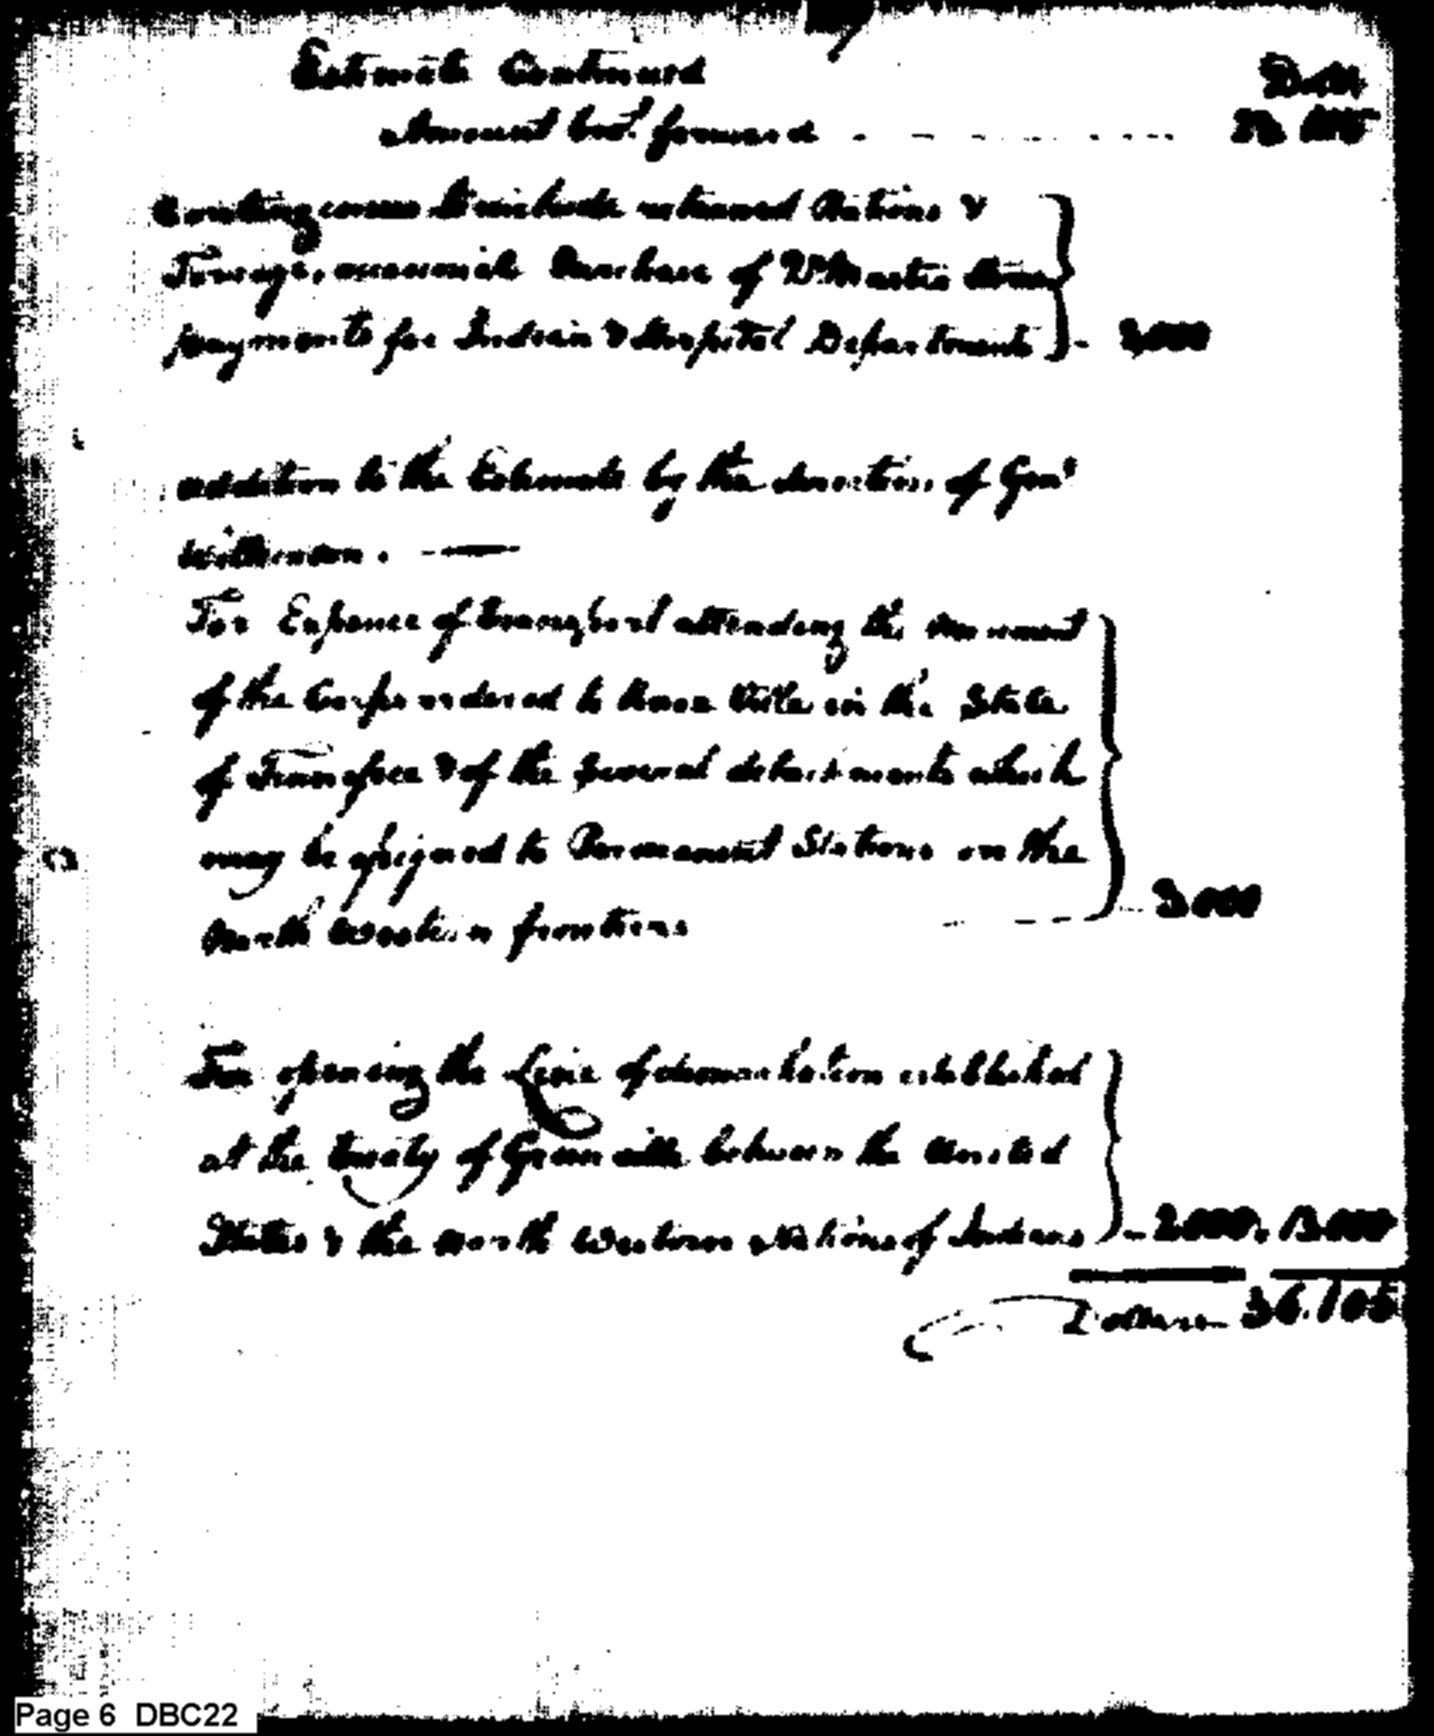 Estimate Continued
Dolls
Amount bro.t forward
Contingences to include retained Rations &
Forage, occasional Purchase of Qr Master Stores
payments for Indian & Hospital Departments
addition to the Estimate by the direction of Genl
Wilkinson.
For Expence of transport attending the movement
of the Corps ordered to Knox Ville in the State
of Tennessee & of the several detachments which
may be assigned to Permanent Stations on the
North Western frontiers 3000
For opening the Line of demarkation established
at the treaty of Greenville between the United
States & the North Western Nations of Indians 2000. 13.000
Dollars 36.105
Page 6 DBC22